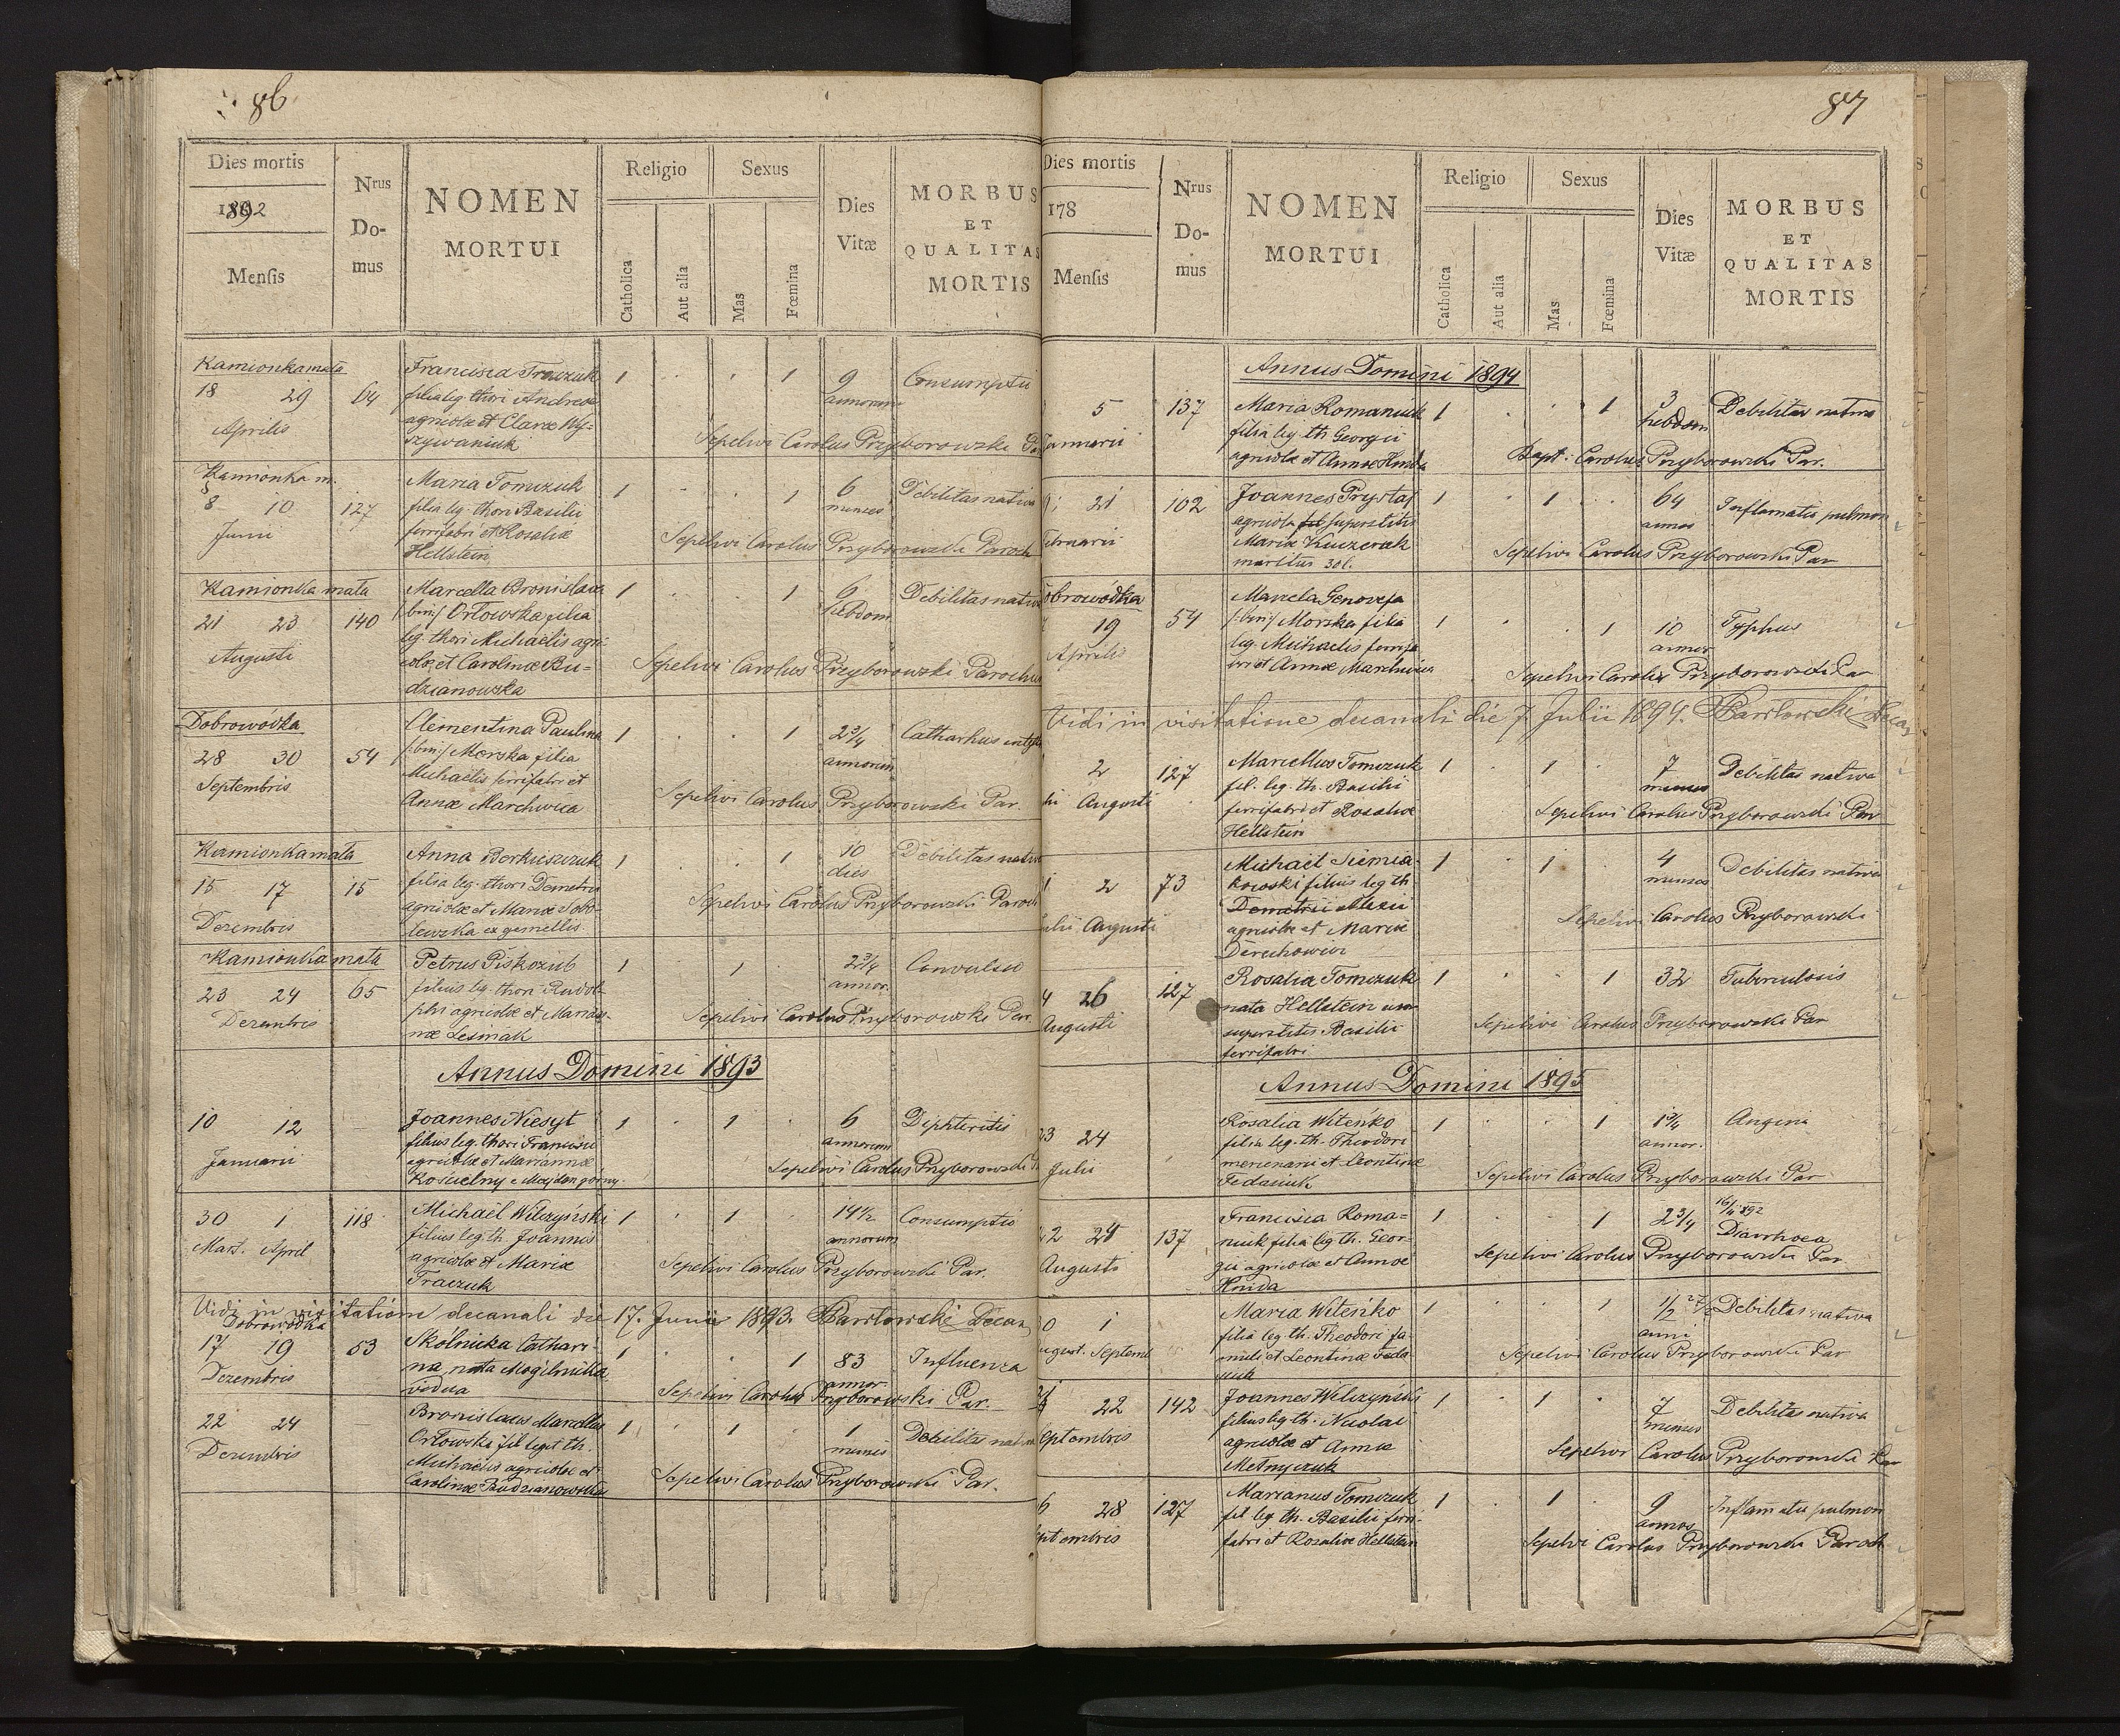 86
Dies mortis
1892
Mensis
Nrus
Do-
mus
NOMEN
MORTUI
Religio
Catholica
Aut alia
Sexus
Mas
Fœmina
Dies
Vitæ
MORBUS
ET
QUALITAS
MORTIS
Kamionka mała
18 29 64
Aprilis
Francisca Traczuk
filia leg. thori Andreae
agricolæ et Claræ Wy=
szywaniuk
1 . . 1
9
annorum
Consumptio
Sepelivi Carolus Przyborowski
Kamionka m.
8 10 127
Junii
Maria Tomczuk
filia leg. thori Basilii
ferrifabri et Rosaliæ
Hellstein
1 . . 1
6
menses
Debilitas nativa
Sepelivi Carolus Przyborowski Paroch
Kamionka mała
21 23 140
Augusti
Marcella Bronislava
/:bin:/ Orłowska filia
leg. thori Michaelis agri-
colæ et Carolinæ Bu=
dzianowska
1 . . 1
6
hebdom
Debilitas nativa
Sepelivi Carolus Przyborowski Parochus
Dobrowódka
28 30 54
Septembris
Clementina Paulina
/:bin:/ Morska filia
Michaelis ferrifabri et
Annæ Marchwica
1 . . 1
2 3/4
annorum
Catharhus
Sepelivi Carolus Przyborowski Par.
Kamionka mała
15 17 15
Dezembris
Anna Berkieszczuk
filia leg. thori Demetrii
agricolæ et Mariæ Sobo-
lewska ex gemellis
1 . . 1
10
dies
Debilitas nativa
Sepelivi Carolus Przyborowski Paroch
Kamionka mała
23 24 65
Dezembris
Petrus Piskozub
filius leg. thori Rudol-
phi agricolæ et Marian-
næ Leśniak
1 . 1 .
2 3/4
annor.
Convulsio
Sepelivi Carolus Przyborowski Par.
Annus Domini 1893
10 12 —
Januarii
Joannes Niesyt
filius leg. thori Francisci
agricolæ et Mariannæ
Kościelny e Majdan górny
1 . 1 .
6
annorum
Diphteritis
Sepelivi Carolus Przyborowski
30 1 118
Mart. April
Michaël Wilczyński
filius leg. th. Joannis
agricolæ et Mariæ
Traczuk
1 . 1 .
14 1/2
annorum
Consumptio
Sepelivi Carolus Przyborowski Par.
Vidi in visitatione decanali die 17. Junii 1893. Bawłowski Decan
Dobrowódka
17 19 53
Dezembris
Skolnicka Cathari-
na nata Mogilnicka
vidua
1 . . 1
83
annor
Influenza
Sepelivi Carolus Przyborowski Par.
22 24 —
Dezembris
Bronislaus Marcellus
Orłowski fil. leg. th.
Michaelis agricolæ et
Carolinæ Budzianowska
1 . 1 .
1
mensis
Debilitas nativa
Sepelivi Carolus Przyborowski Par.
87
Dies mortis
178
Mensis
Nrus
Do-
mus
NOMEN
MORTUI
Religio
Catholica
Aut alia
Sexus
Mas
Fœmina
Dies
Vitæ
MORBUS
ET
QUALITAS
MORTIS
Annus Domini 1894
5 137
Januarii
Maria Romaniuk
filia leg. th. Georgii
agricolæ et Annæ Hnida
1 . . 1
3
hebdom
Debilitas nativa
Bapt: Carolus Przyborowski Par.
21 102
Februarii
Joannes Prystaj
agricola superstitis
Mariæ Kuczerak
maritus
1 . 1 .
64
annos
Inflamatio pulmon
Sepelivi Carolus Przyborowski Par
Dobrowódka
19 54
Aprilis
Marcela Genovefa
/:bin:/ Morska filia
leg. Michaelis ferrifa
bri et Annæ Marchwica
1 . . 1
10
annos
Typhus
Sepelivi Carolus Przyborowski Par
Vidi in visitatione decanali die 7. Julii 1894. Bawłowski Decan
2 127
Augusti
Marcellus Tomczuk
fil. leg. th. Basilii
ferrifabri et Rosaliæ
Hellstein
1 . 1 .
7
menses
Debilitas nativa
Sepelivi Carolus Przyborowski Par
2 73
Julii Augusti
Michaël Siemia-
kowski filius leg. th.
Demetrii Alexii
agricolæ et Mariæ
Derechowicz
1 . 1 .
4
menses
Debilitas nativa
Sepelivi Carolus Przyborowski
4 26 127
Augusti
Rosalia Tomczuk
nata Hellstein uxor
superstitis Basilii
ferrifabri
1 . . 1
32
Tuberculosis
Sepelivi Carolus Przyborowski Par
Annus Domini 1895
23 24
Julii
Rosalia Witeńko
filia leg. th. Theodori
mercenarii et Leontinæ
Fedasiuk
1 . . 1
1 3/4
annor.
Angina
Sepelivi Carolus Przyborowski Par
22 24 137
Augusti
Francisca Roma=
niuk filia leg. th. Geor-
gii agricolæ et Annæ
Hnida
1 . . 1
2 3/4
Diarrhoea
Sepelivi Carolus Przyborowski Par.
30 1
August. Septemb
Maria Witeńko
filia leg. th. Theodori fa-
muli et Leontinæ Feda
siuk
1 . . 1
1/2
anni
Debilitas nativa
Sepelivi Carolus Przyborowski Par
22 142
Septembris
Joannes Wilczyński
filius leg. th. Nicolai
agricolæ et Annæ
Melnyczuk
1 . 1 .
7
menses
Debilitas nativa
Sepelivi Carolus Przyborowski Par
6 28 127
Septembris
Marianus Tomczuk
fil. leg. th. Basilii ferri-
fabri et Rosaliæ Hellstein
1 . 1 .
9
annos
Inflamatio pulmon
Sepelivi Carolus Przyborowski Paroch